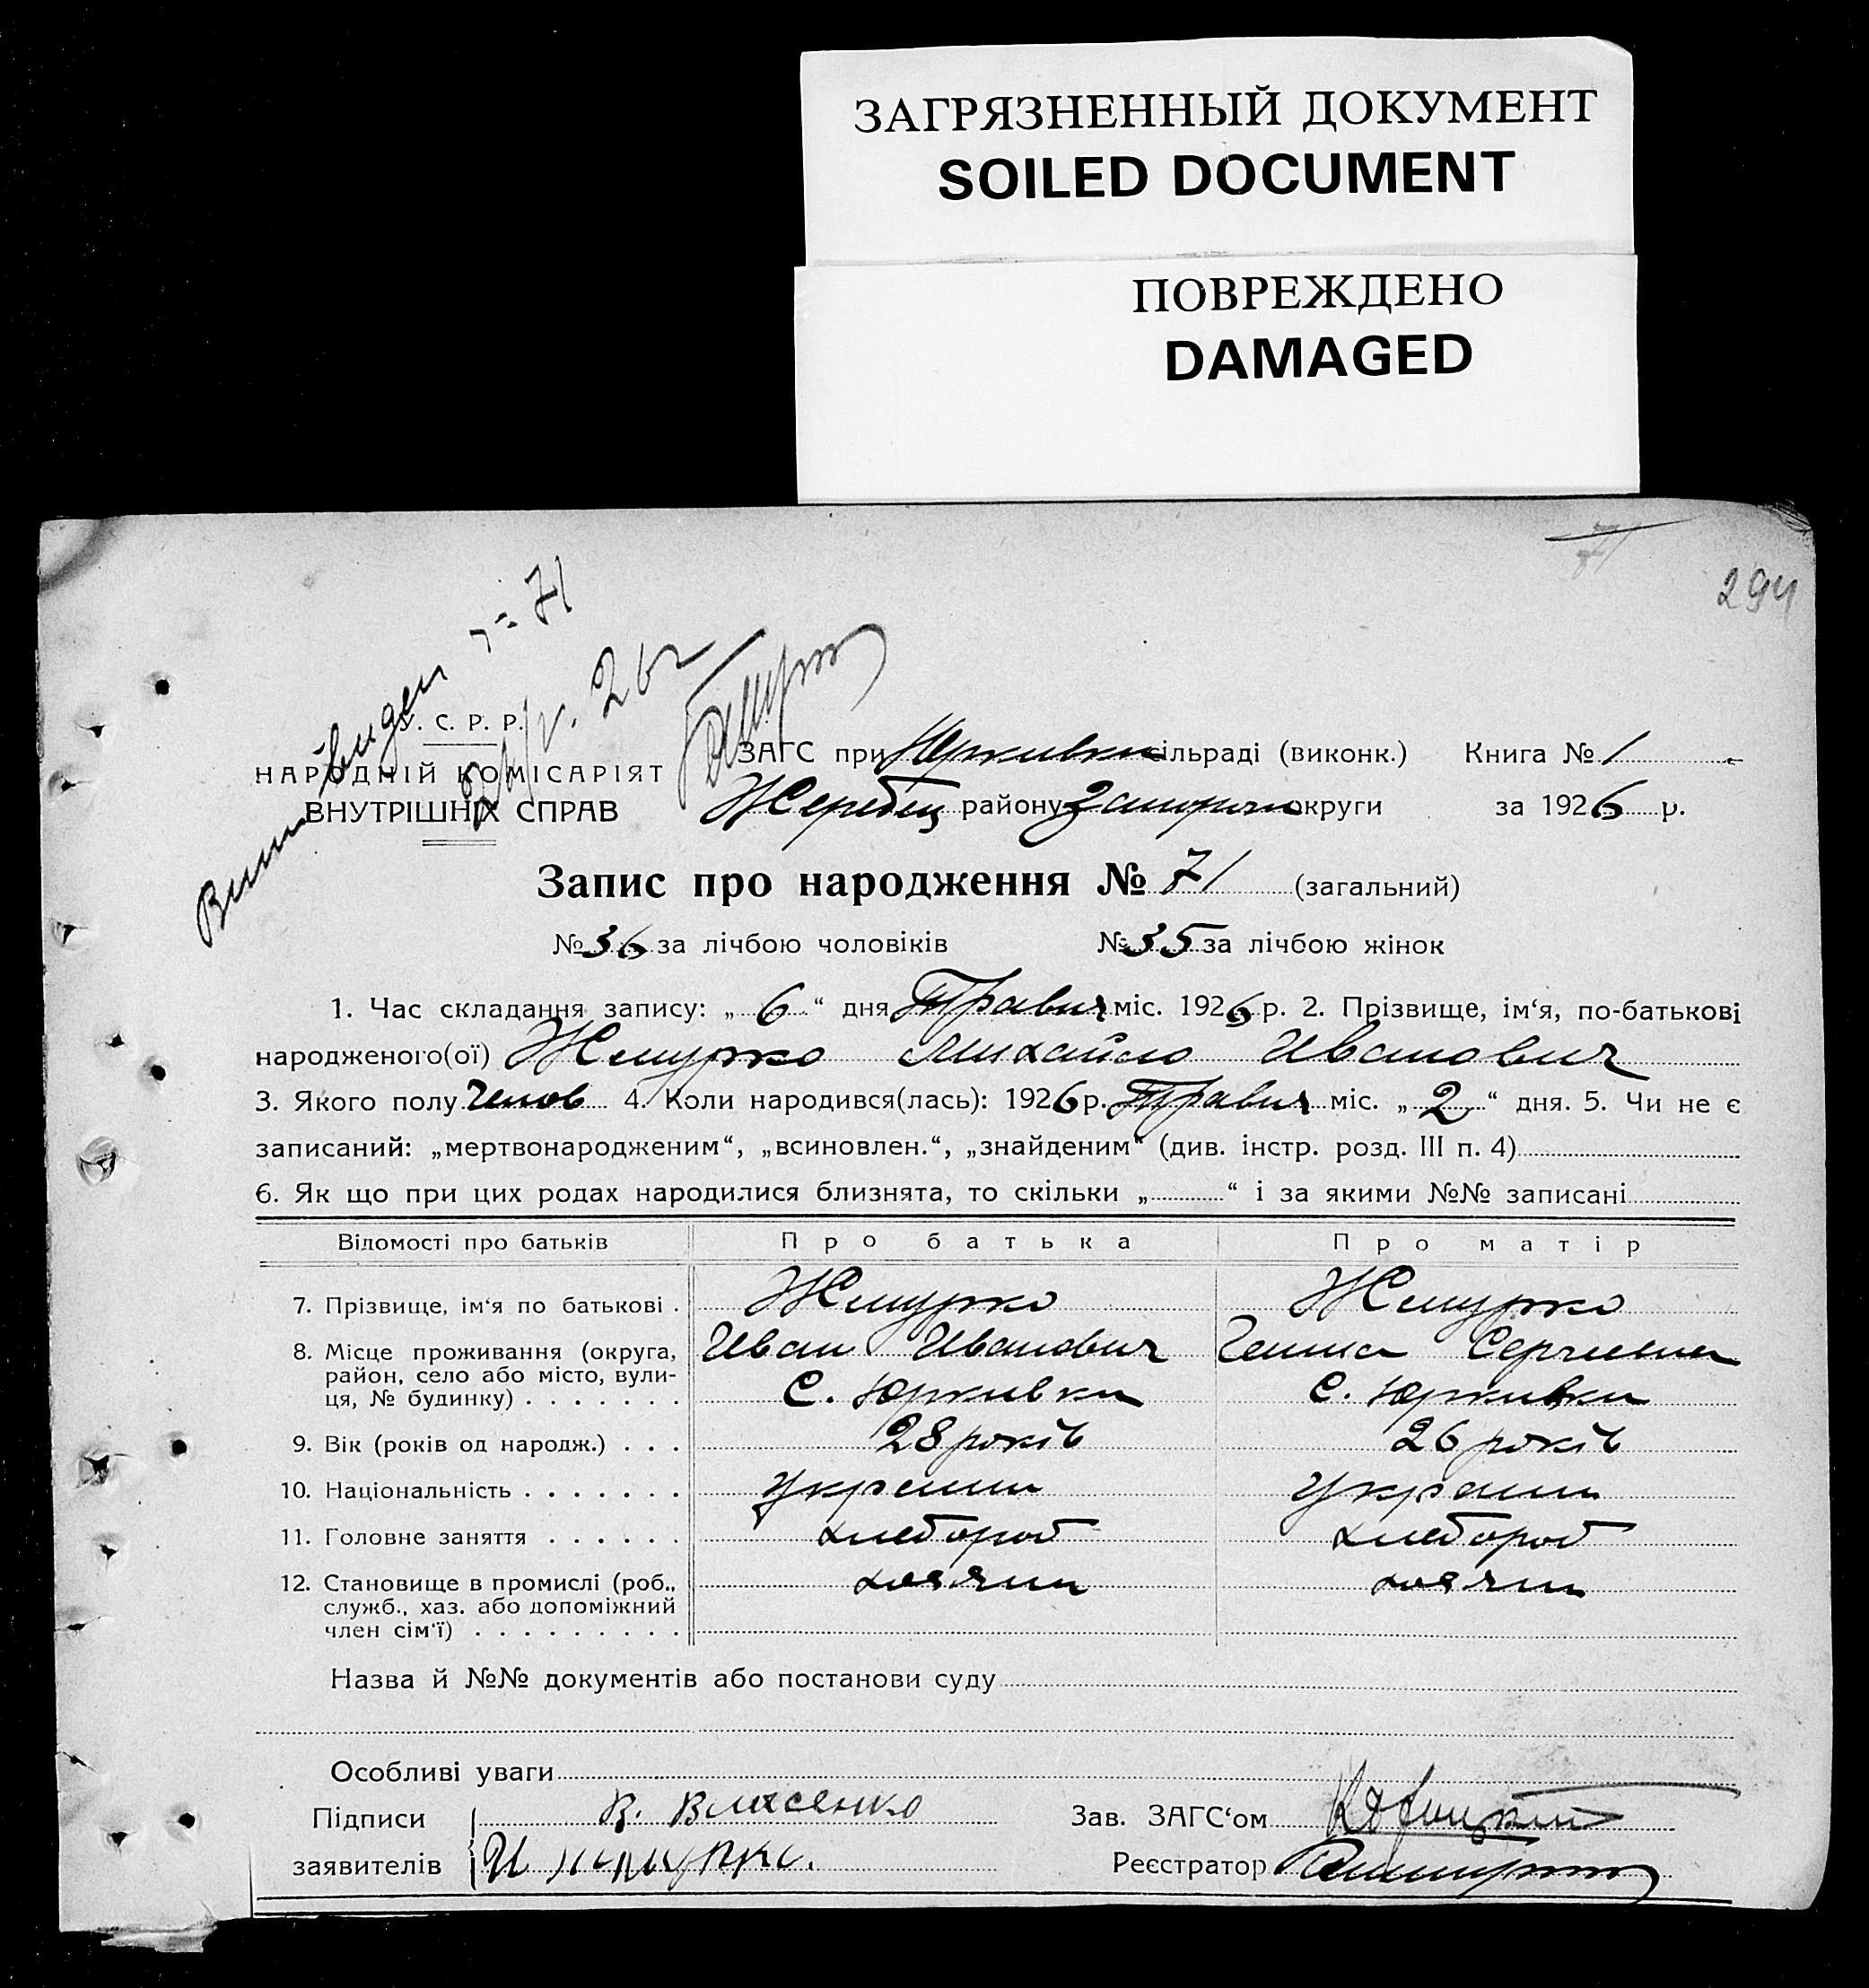 ЗАГРЯЗНЕННЫЙ ДОКУМЕНТ
SOILED DOCUMENT
ПОВРЕЖДЕНО
DAMAGED
71
294
71
У. С. Р. Р.
НАРОДНІЙ КОМІСАРІЯТ
ВНУТРІШНІХ СПРАВ
ЗАГС при Юркивки сільраді (виконк.) Книга № 1
Жеребец району округи за 1926 р.
Запис про народження № 71 (загальний)
№ 36 за лічбою чоловіків № 35 за лічбою жінок
1. Час складання запису: „ 6 “ дня Травня міс. 1926 р. 2. Прізвище, ім‘я, по-батькові
народженого(ої) Жмурко Михайло Иванович
3. Якого полу Челов 4. Коли народився(лась): 1926 р. Травня міс. „ 2 “ дня. 5. Чи не є
записаний: „мертвонародженим“, „всиновлен.“, „знайденим“ (див. інстр. розд. III п. 4)
6. Як що при цих родах народилися близнята, то скільки „ “ і за якими №№ записані
Відомості про батьків Про батька Про матір
7. Прізвище, ім‘я по батькові . Жмурко Жмурко
Иван Иванович Ганна
8. Місце проживання (округа, район, село або місто, вули-ця, № будинку) . . . . . . . с. Юркивки с. Юркивки
9. Вік (років од народж.) . . . 28 років 26 років
10. Національність . . . . . . . украин украин
11. Головне заняття . . . . . . хлебороб хлебороб
12. Становище в промислі (роб., служб., хаз. або допоміжний член сім‘ї) . . . . . . . . . хозяин хозяин
Назва й №№ документів або постанови суду
Особливі уваги
Підписи В. Власенко Зав. ЗАГС‘ом
заявителів И Жмурко. Реєстратор